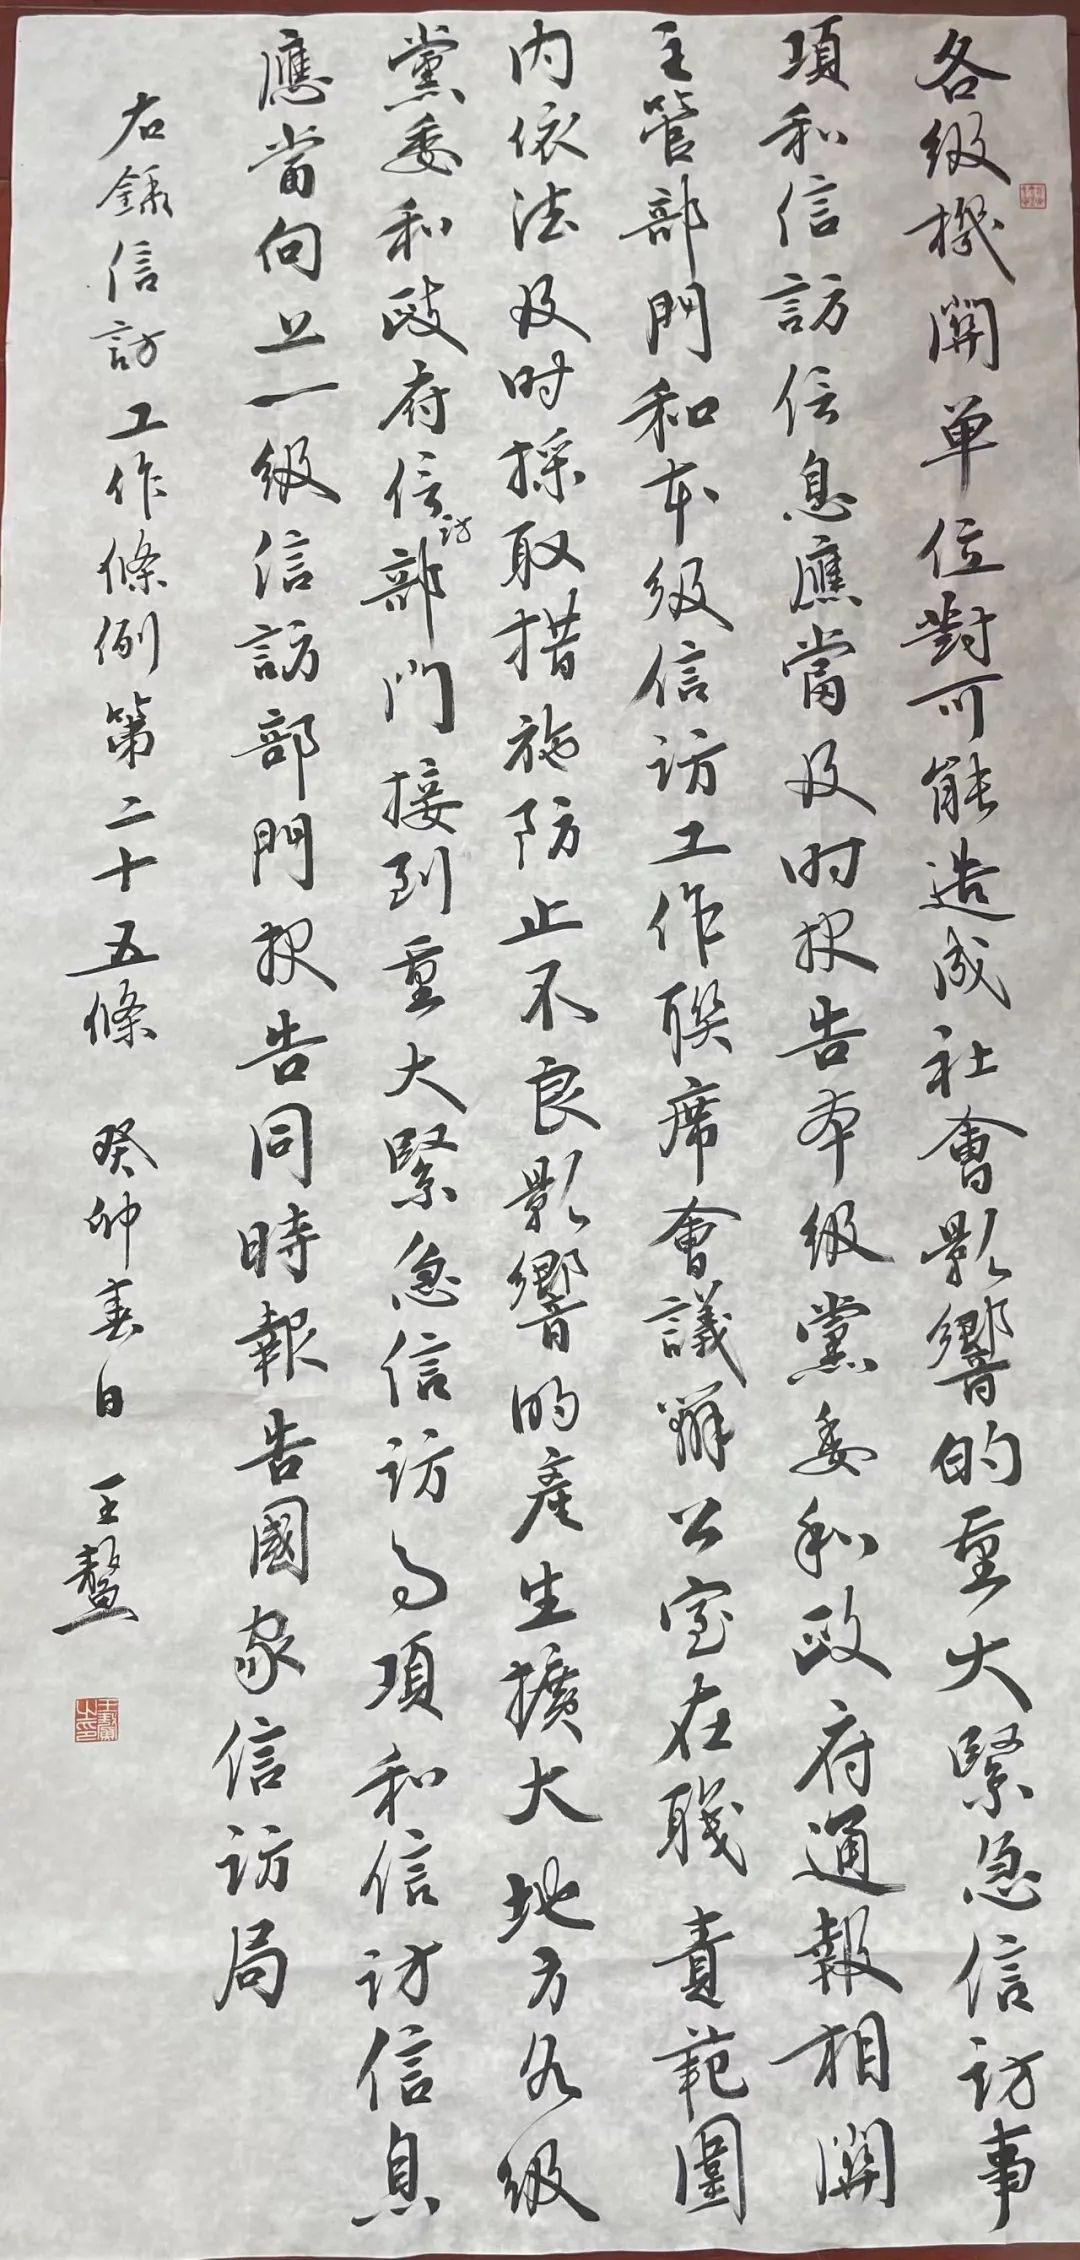 各级機関单位對可能造成社會影響的重大緊急信訪事
項和信訪信息應當及时报告本级黨委和政府通報相関
主管部門和本级信访工作聯席會議辦公室在職責範圍
内依法及时採取措施防止不良影響的產生擴大地方各级
黨委和政府信访部门接到重大緊急信访事項和信访信息
應當向上一级信訪部門报告同時報告國家信访局
右錄信訪工作條例第二十五條 癸卯春日 王鰲